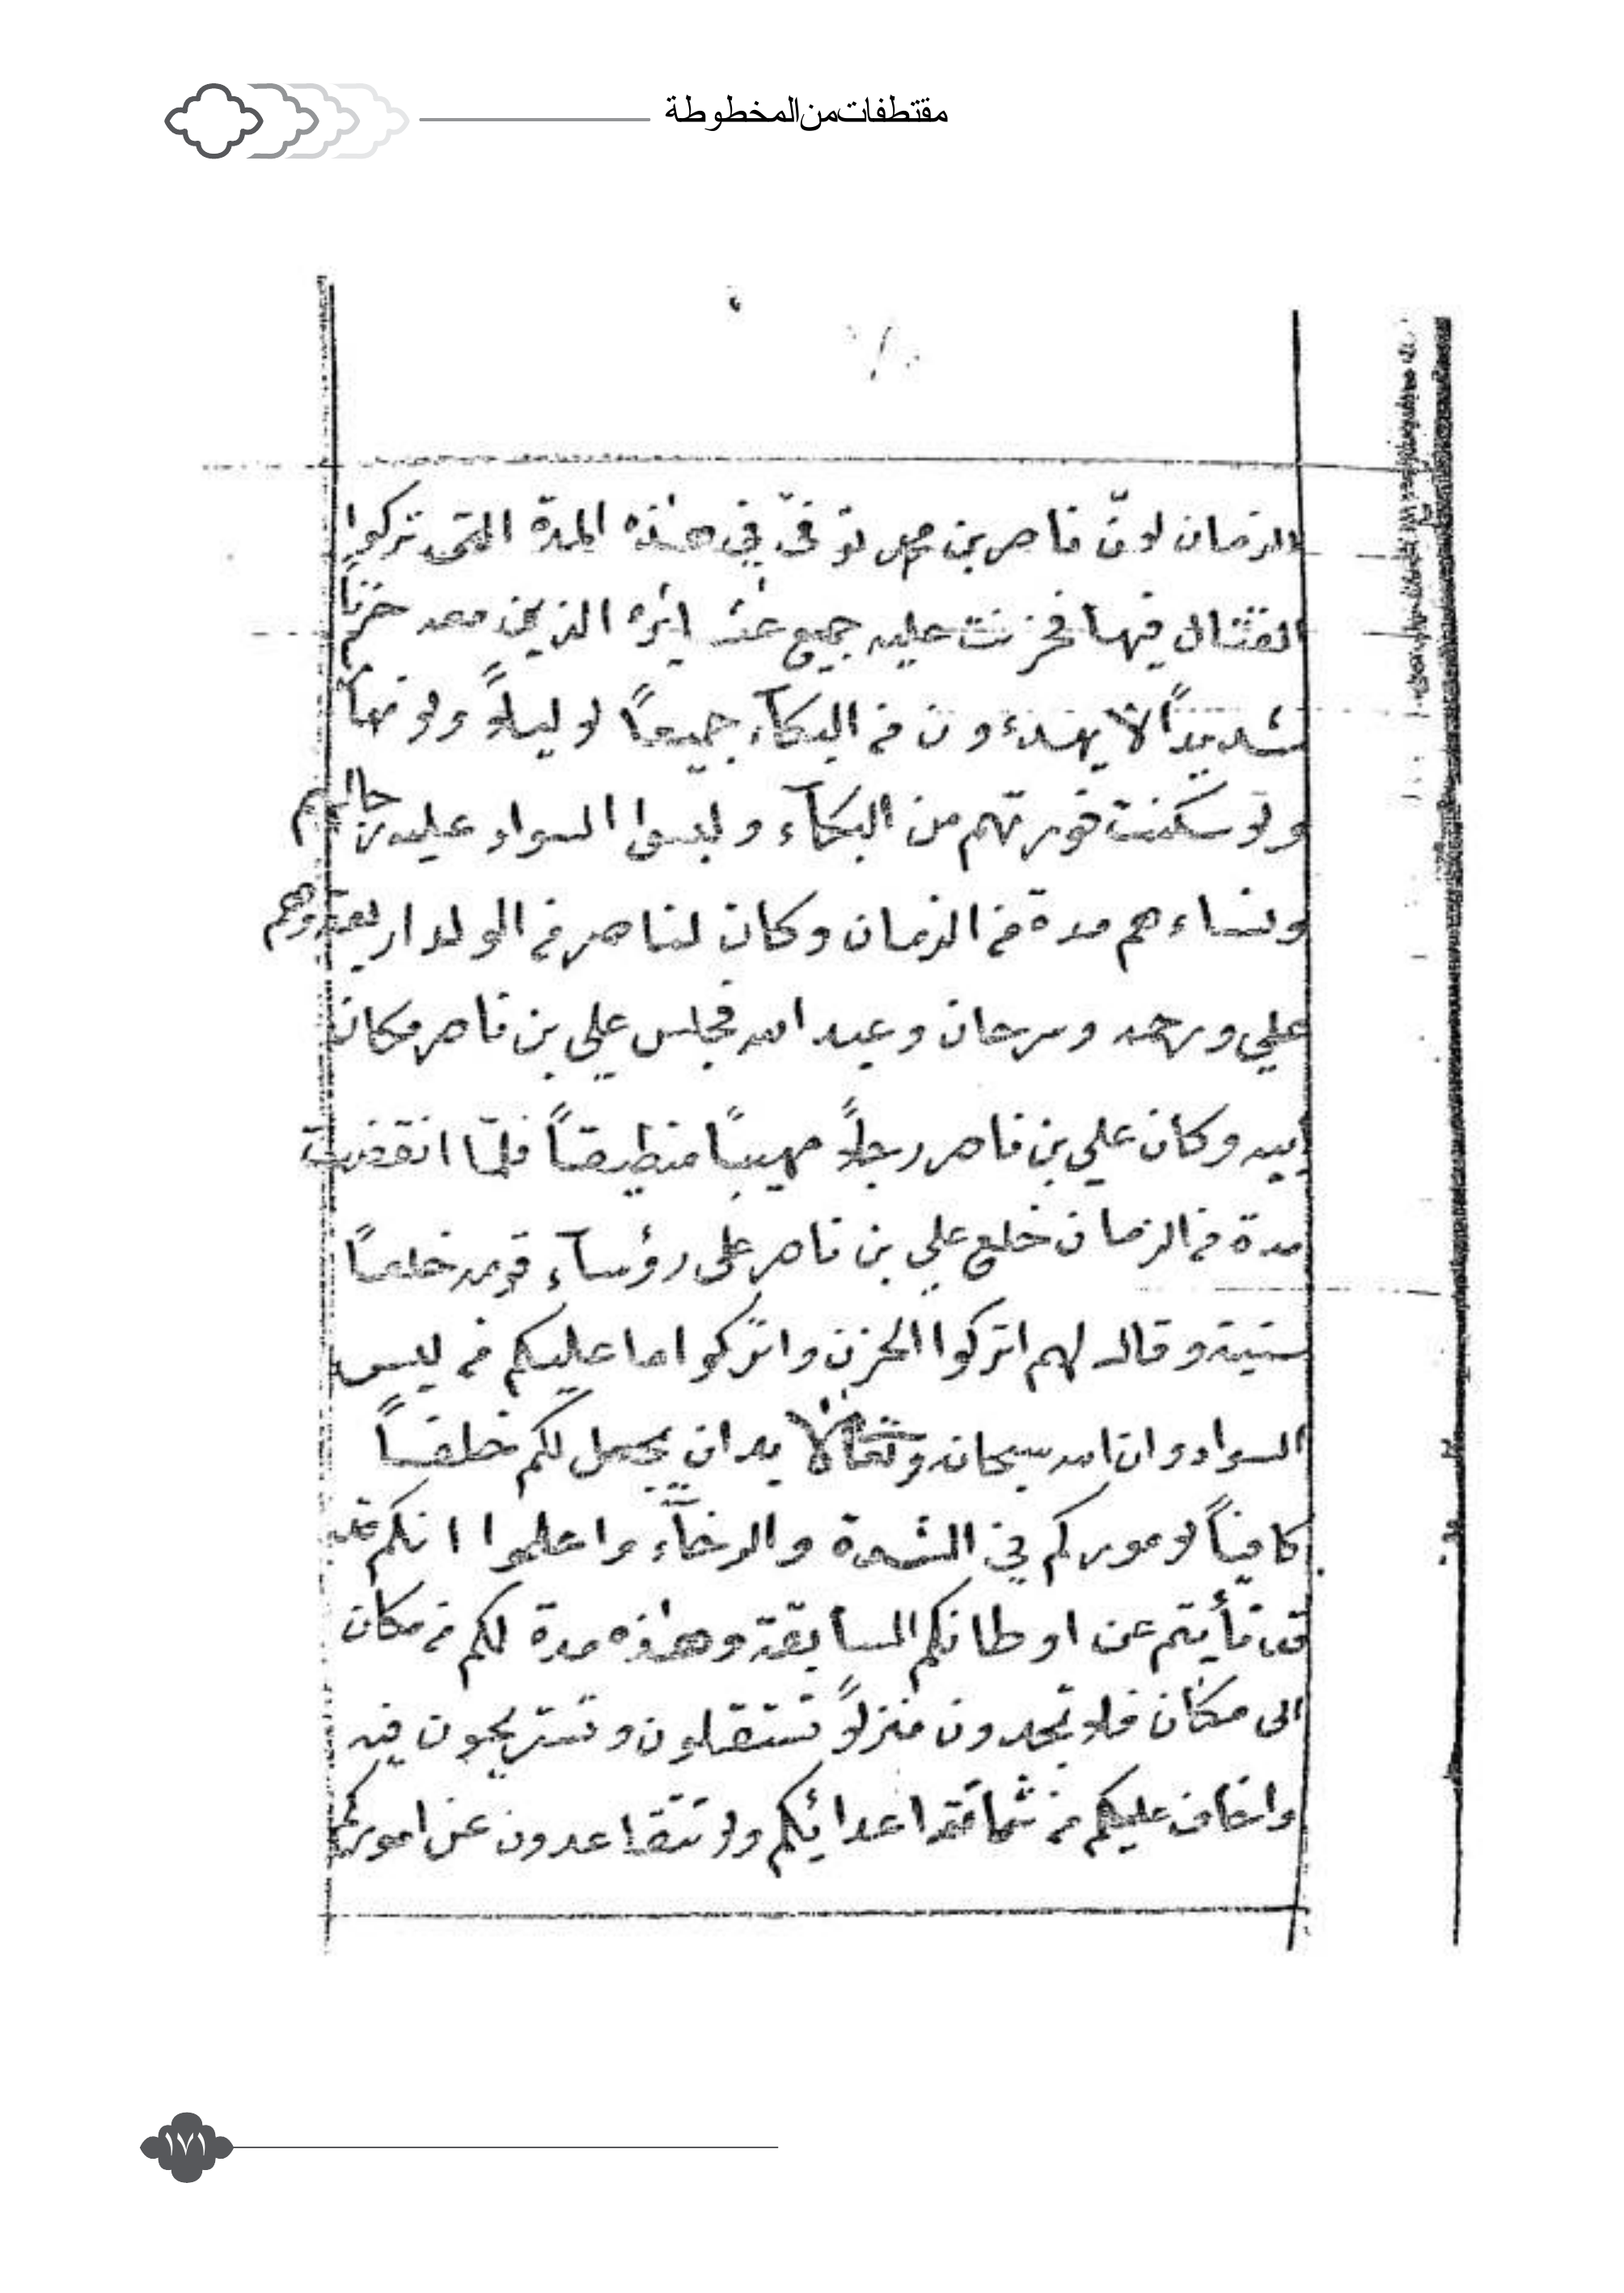 مقتطفات من المخطوطة
الزمان لانّ ناصر بن محمد توفّي في هذه المدة التي تركوا
القتال فيها فحزنت عليه جميع عشائره الذين معه حزناً
شديداً لا يهدءون من البكآء جميعاً لا ليلاً ولا نهاراً
ولا سكنت فورتهم من البكآء ولبسوا السواد عليه رجالهم
ونساءهم مدة من الزمان وكان لناصر من الولد اربعة وهم
علي ورحمه وسرحان وعبد الله فجلس علي بن ناصر مكان
ابيه وكان علي بن ناصر رجلاً مهيباً منطيقاً فلمّا انقضت
مدة من الزمان خلع علي بن ناصر على رؤسآء قومه خلعاً
سنية وقال لهم اتركوا الحزن واتركوا ما عليكم من لبس
السواد وان الله سبحانه وتعالى لا بد ان يجعل لكم خلفاً
كافياً لاموركم في الشدة والرخآء واعلموا انكم
قد نأيتم عن اوطانكم السابقة وهذه مدة لكم من مكان
الى مكان فلا تجدون منزلاً تستقلون وتستريحون فيه
واخاف عليكم من شماتة اعدائكم ولا تتقاعدون عن اموركم
١٧١